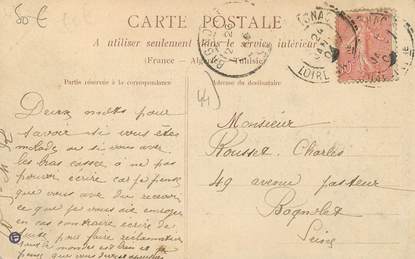 80 €
CARTE POSTALE
A utiliser seulement dans le service intérieur
(France — Algérie — Tunisie)
Partie réservée à la correspondance
Adresse du destinataire
LOIRE
44)
Deux mots pour
savoir si vous etes
malade ou si vous avec
les bras cassée a ne pas
pouvoir ecrire car je pense
que vous avez du recevoir
ce que je vous ait envoyer
en cas contraire ecrire de
suite pour faire reclamation
tous le monde est bien et je
pense que vous
Monsieur
Rousset Charles
49 avenue pasteur
Bagnolet
Seine